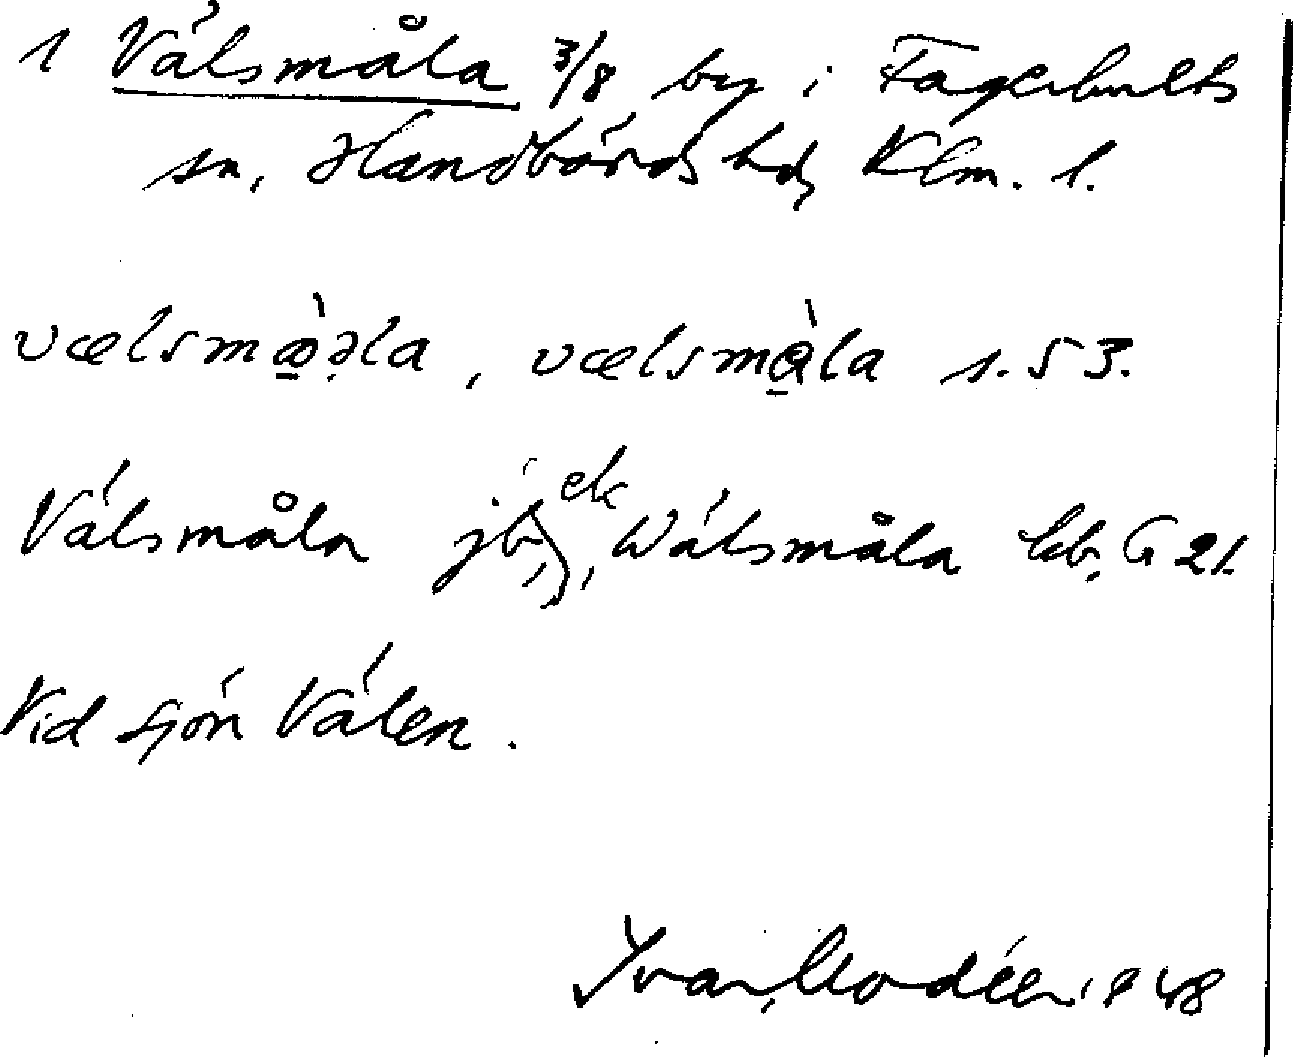 1 Välsmåla 3/8 by i Fagerhults
sn, Handbörds hd, Klm. l.
vælsmåla s. 53.
Välsmåla jb, ek, Wälsmåla kb. G 21.
Vid sjön Välen.
Ivar Modéer 1948